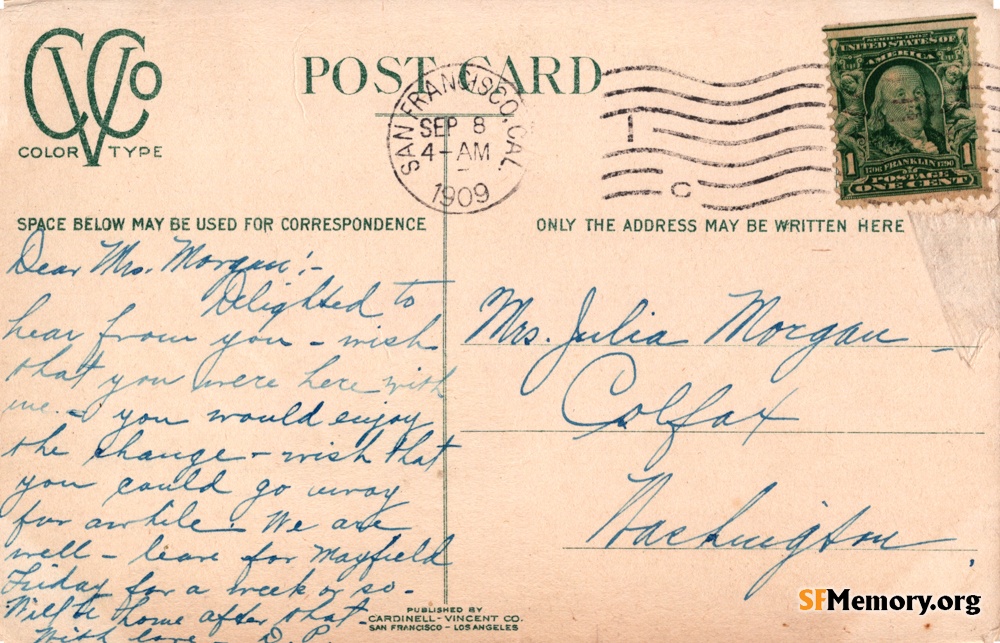 CVCo
COLOR TYPE
POST CARD
SAN FRANCISCO, CAL.
SEP 8
4-AM
1909
1
C
SERIES 1902
UNITED STATES OF AMERICA
1 1706 FRANKLIN 1790 1
POSTAGE
ONE CENT
SPACE BELOW MAY BE USED FOR CORRESPONDENCE
Dear Mrs. Morgan:-
Delighted to
hear from you - wish
that you were here with
me. - you would enjoy
the change - wish that
you could go away
for awhile. We are
well - leave for Mayfield
Friday for a week or so.
Will be home after that -
With love - D.P.
ONLY THE ADDRESS MAY BE WRITTEN HERE
Mrs. Julia Morgan -
Colfax
Washington,
PUBLISHED BY
CARDINELL-VINCENT CO.
SAN FRANCISCO - LOS ANGELES
SFMemory.org